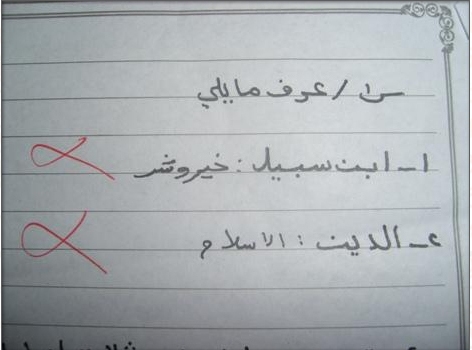 س١/ عرف مايلي
١- ابن سبيل : خير وشر
٢- الدين : الاسلام